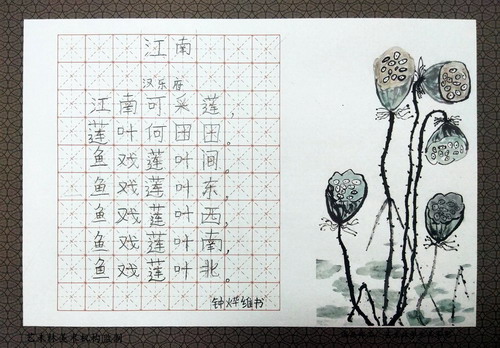 江南
汉乐府
江南可采莲,
莲叶何田田。
鱼戏莲叶间。
鱼戏莲叶东,
鱼戏莲叶西。
鱼戏莲叶南,
鱼戏莲叶北。